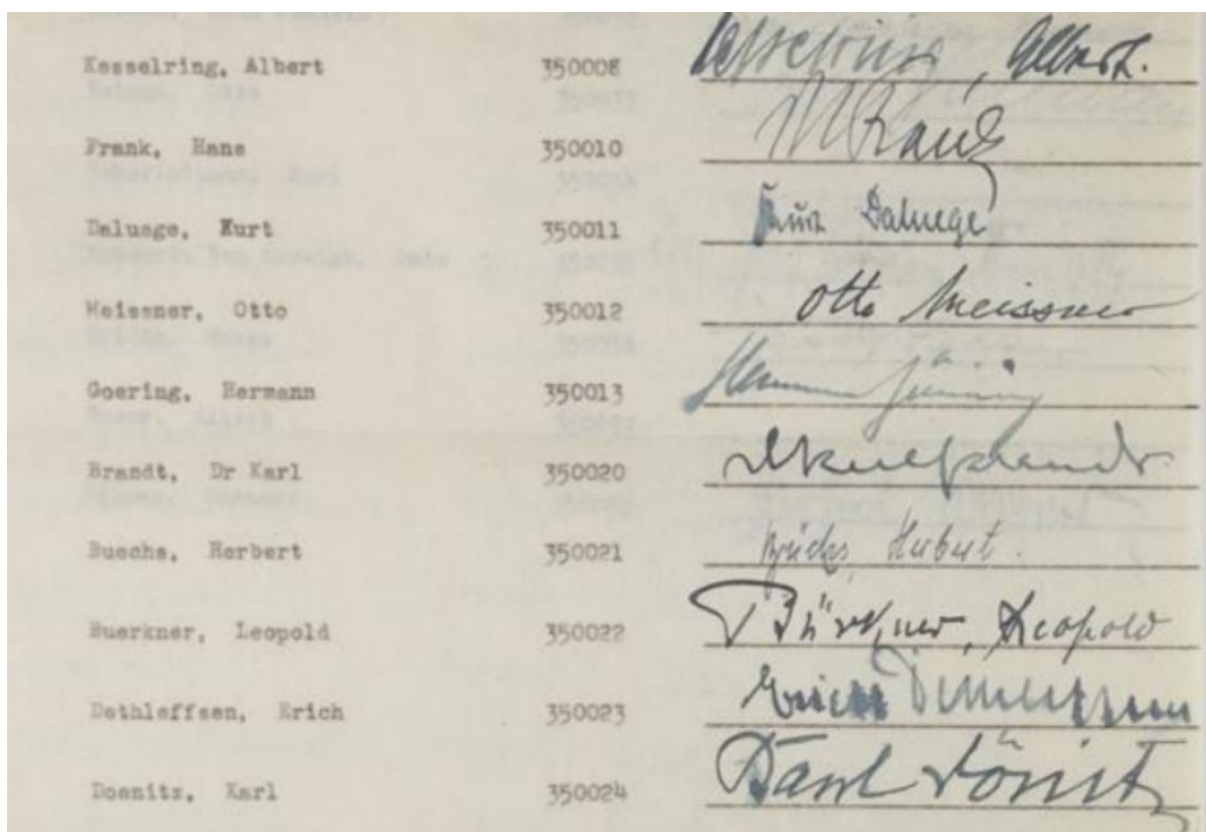 Kesselring, Albert 350008 Kesselring, Albert.
Frank, Hans 350010 Frank
Daluege, Kurt 350011 Kurt Daluege
Meissner, Otto 350012 Otto Meissner
Goering, Hermann 350013 Hermann Göring
Brandt, Dr Karl 350020
Buechs, Herbert 350021 Büchs, Herbert.
Buerkner, Leopold 350022 Bürkner, Leopold
Dethleffsen, Erich 350023 Erich Dethleffsen
Doenitz, Karl 350024 Karl Dönitz